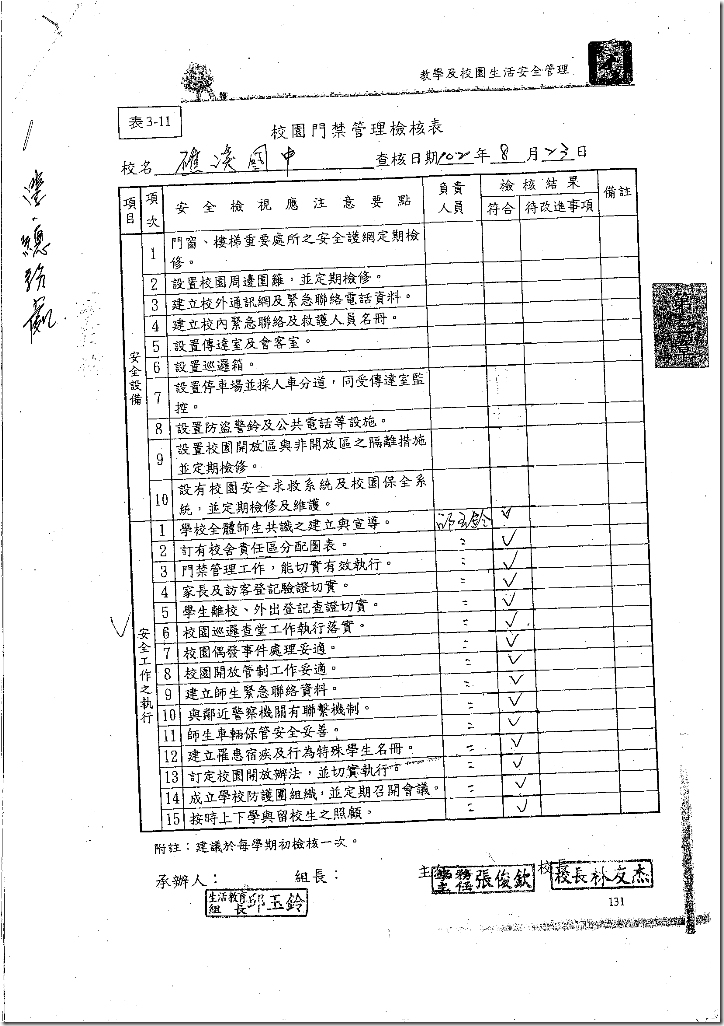 教學及校園生活安全管理
表3-11
校園門禁管理檢核表
校名 礁溪國中 查核日期102年8月23日
項目 項次 安全檢視應注意要點 負責人員 檢核結果 備註
符合 待改進事項
安全設備
1 門窗、樓梯重要處所之安全護網定期檢
修。
2 設置校園周邊圍籬，並定期檢修。
3 建立校外通訊網及緊急聯絡電話資料。
4 建立校內緊急聯絡及救護人員名冊。
5 設置傳達室及會客室。
6 設置巡邏箱。
7 設置停車場並採人車分道，同受傳達室監
控。
8 設置防盜警鈴及公共電話等設施。
9 設置校園開放區與非開放區之隔離措施
並定期檢修。
10 設有校園安全求救系統及校園保全系
統，並定期檢修及維護。
安全工作之執行
1 學校全體師生共識之建立與宣導。 邱玉鈴 ✓
2 訂有校舍責任區分配圖表。 〃 ✓
3 門禁管理工作，能切實有效執行。 〃 ✓
4 家長及訪客登記驗證切實。 〃 ✓
5 學生離校、外出登記查證切實。 〃 ✓
6 校園巡邏查堂工作執行落實。 〃 ✓
7 校園偶發事件處理妥適。 〃 ✓
8 校園開放管制工作妥適。 〃 ✓
9 建立師生緊急聯絡資料。 〃 ✓
10 與鄰近警察機關有聯繫機制。 〃 ✓
11 師生車輛保管安全妥善。 〃 ✓
12 建立罹患宿疾及行為特殊學生名冊。 〃 ✓
13 訂定校園開放辦法，並切實執行。 〃 ✓
14 成立學校防護團組織，並定期召開會議。 〃 ✓
15 按時上下學與留校生之照顧。 〃 ✓
附註：建議於每學期初檢核一次。
承辦人： 組長： 主任 校長
生活教育組長 邱玉鈴
學務主任 張俊欽
校長 林文杰
131
總務處
第三章